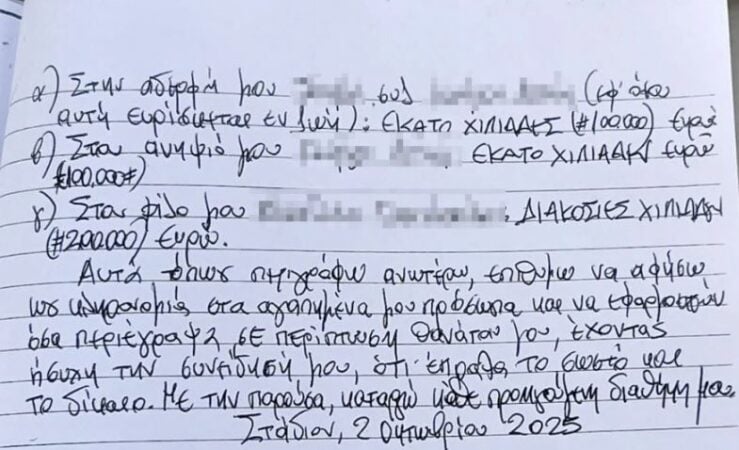 α) Στην αδερφή μου συζ (εφ' όσον
αυτή ευρίσκεται εν ζωή): ΕΚΑΤΟ ΧΙΛΙΑΔΕΣ (#100.000) Ευρώ
β) Στον ανηψιό μου ΕΚΑΤΟ ΧΙΛΙΑΔΕΣ ευρώ
(#100.000#)
γ) Στον φίλο μου ΔΙΑΚΟΣΙΕΣ ΧΙΛΙΑΔΕΣ
(#200.000) Ευρώ.
Αυτά όπως περιγράφω ανωτέρω, επιθυμώ να αφήσω
ως κληρονομιές στα αγαπημένα μου πρόσωπα και να εφαρμοστούν
όσα περιέγραψα, σε περίπτωση θανάτου μου, έχοντας
ήσυχη την συνείδησή μου, ότι έπραξα το σωστό και
το δίκαιο. Με την παρούσα, καταργώ κάθε προηγούμενη διαθήκη μου.
Στάδιον, 2 Οκτωβρίου 2025